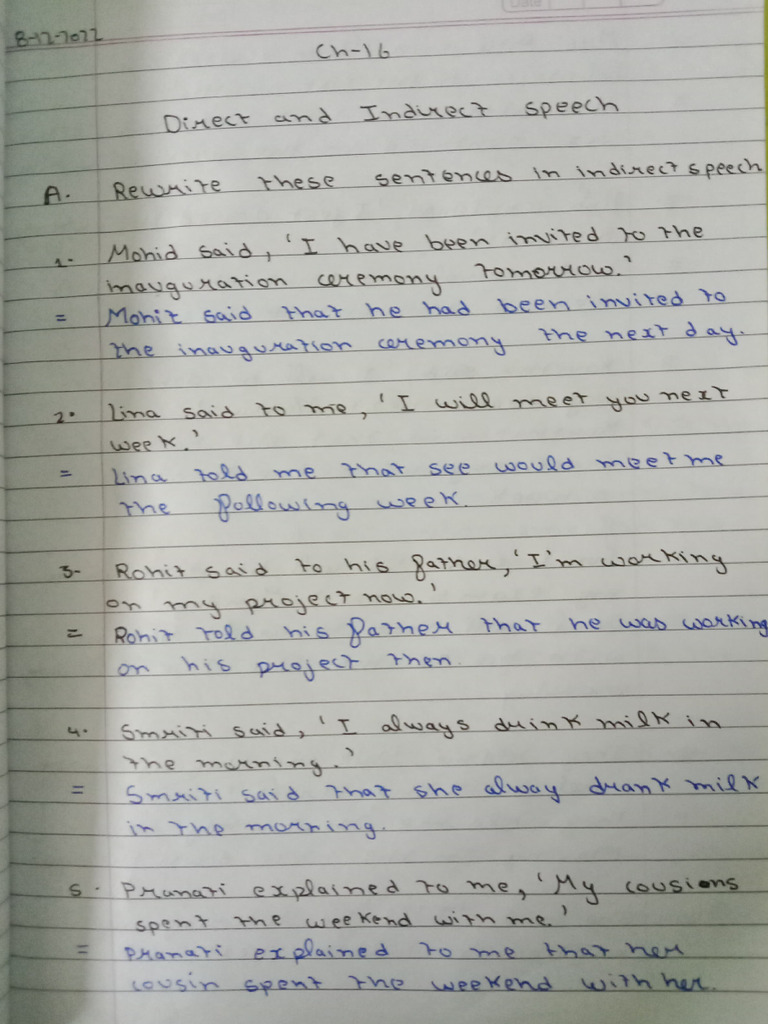 8-12-2022
Ch-16
Direct and Indirect speech
A. Rewrite these sentences in indirect speech
1- Mohid said, 'I have been invited to the
inauguration ceremony tomorrow.'
= Mohit said that he had been invited to
the inauguration ceremony the next day.
2. Lina said to me, 'I will meet you next
week.'
= Lina told me that see would meet me
the following week.
3- Rohit said to his father, 'I'm working
on my project now.'
= Rohit told his father that he was working
on his project then.
4. Smriti said, 'I always drink milk in
the morning.'
= Smriti said that she alway drank milk
in the morning.
5. Pranati explained to me, 'My cousions
spent the weekend with me.'
= Pranati explained to me that her
cousin spent the weekend with her.